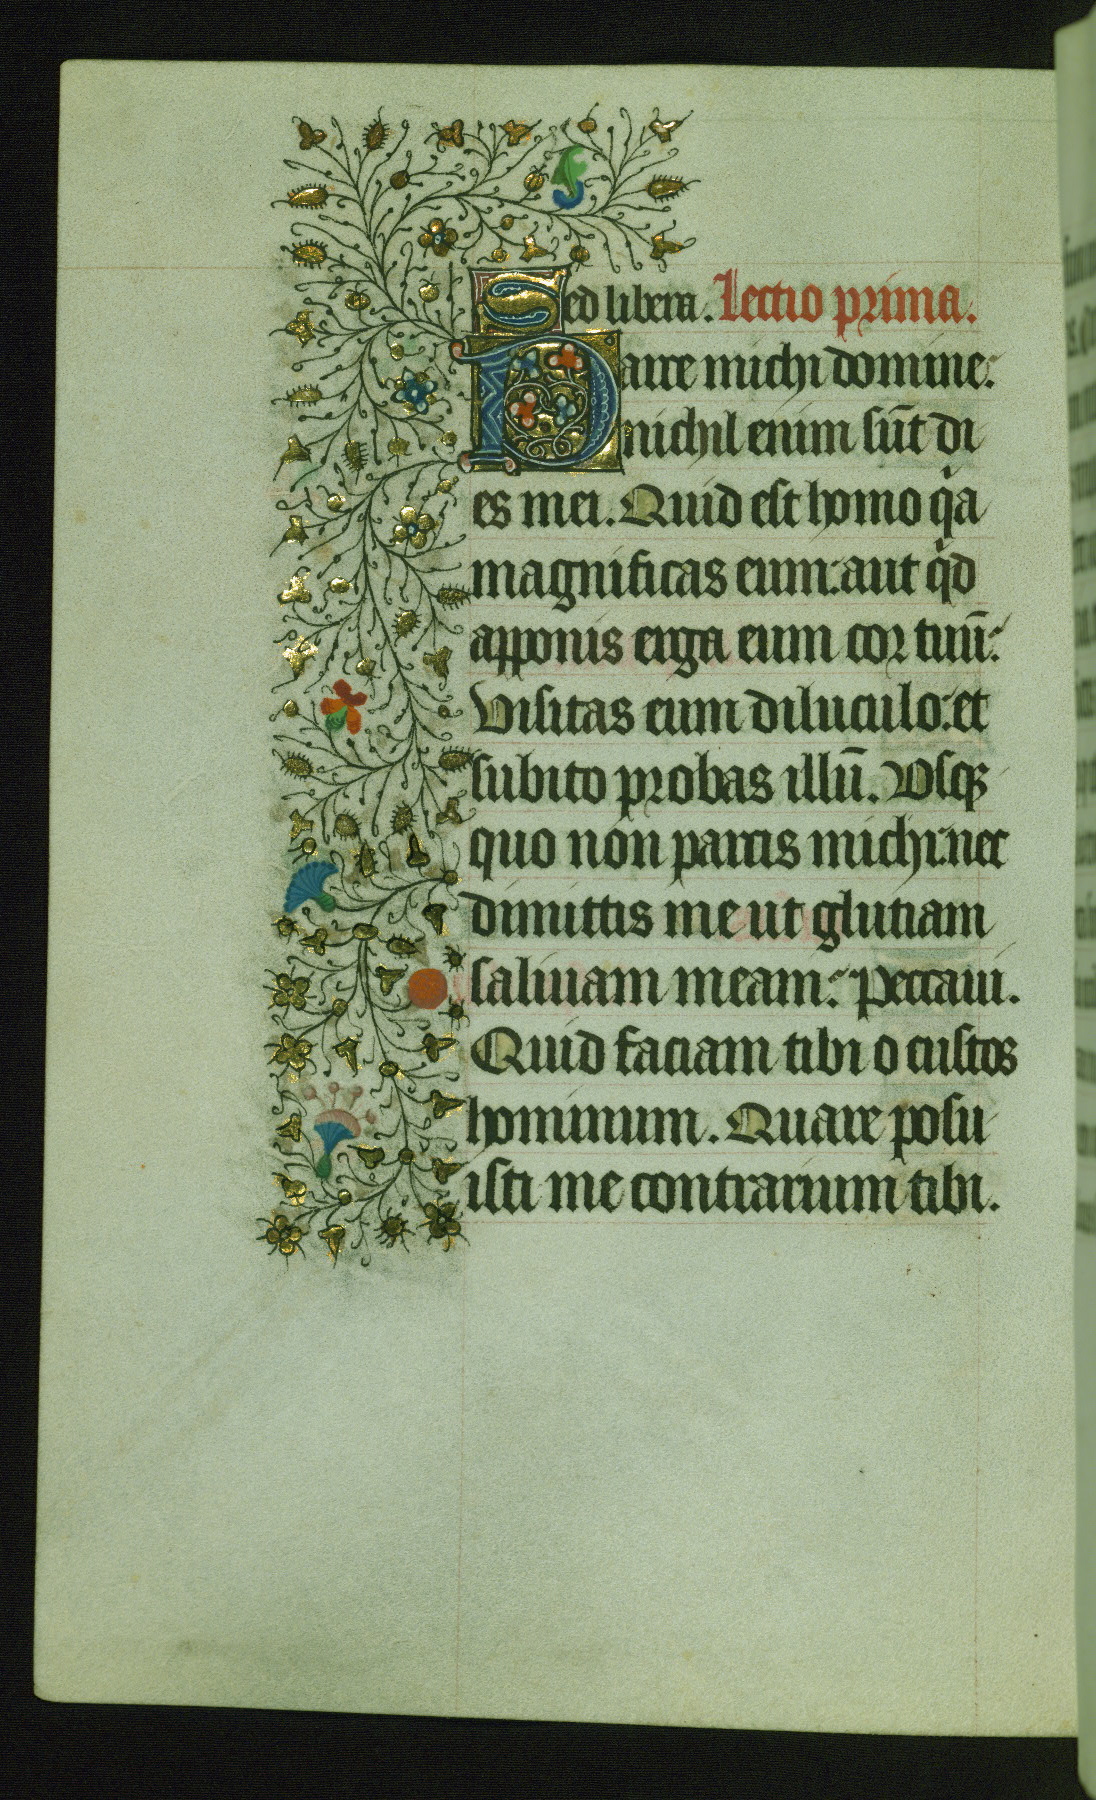 Sed libera. Lectio prima.
Parce michi domine:
nichil enim sūt di
es mei. Quid est homo qͥa
magnificas eum: aut qͥd
apponis erga eum cor tuū:
Visitas eum diluculo: et
subito probas illū. Vsqꝫ
quo non parcis michi: nec
dimittis me ut glutiam
saliuam meam: Peccaui.
Quid faciam tibi o custos
hominum. Quare posu
isti me contrarium tibi.